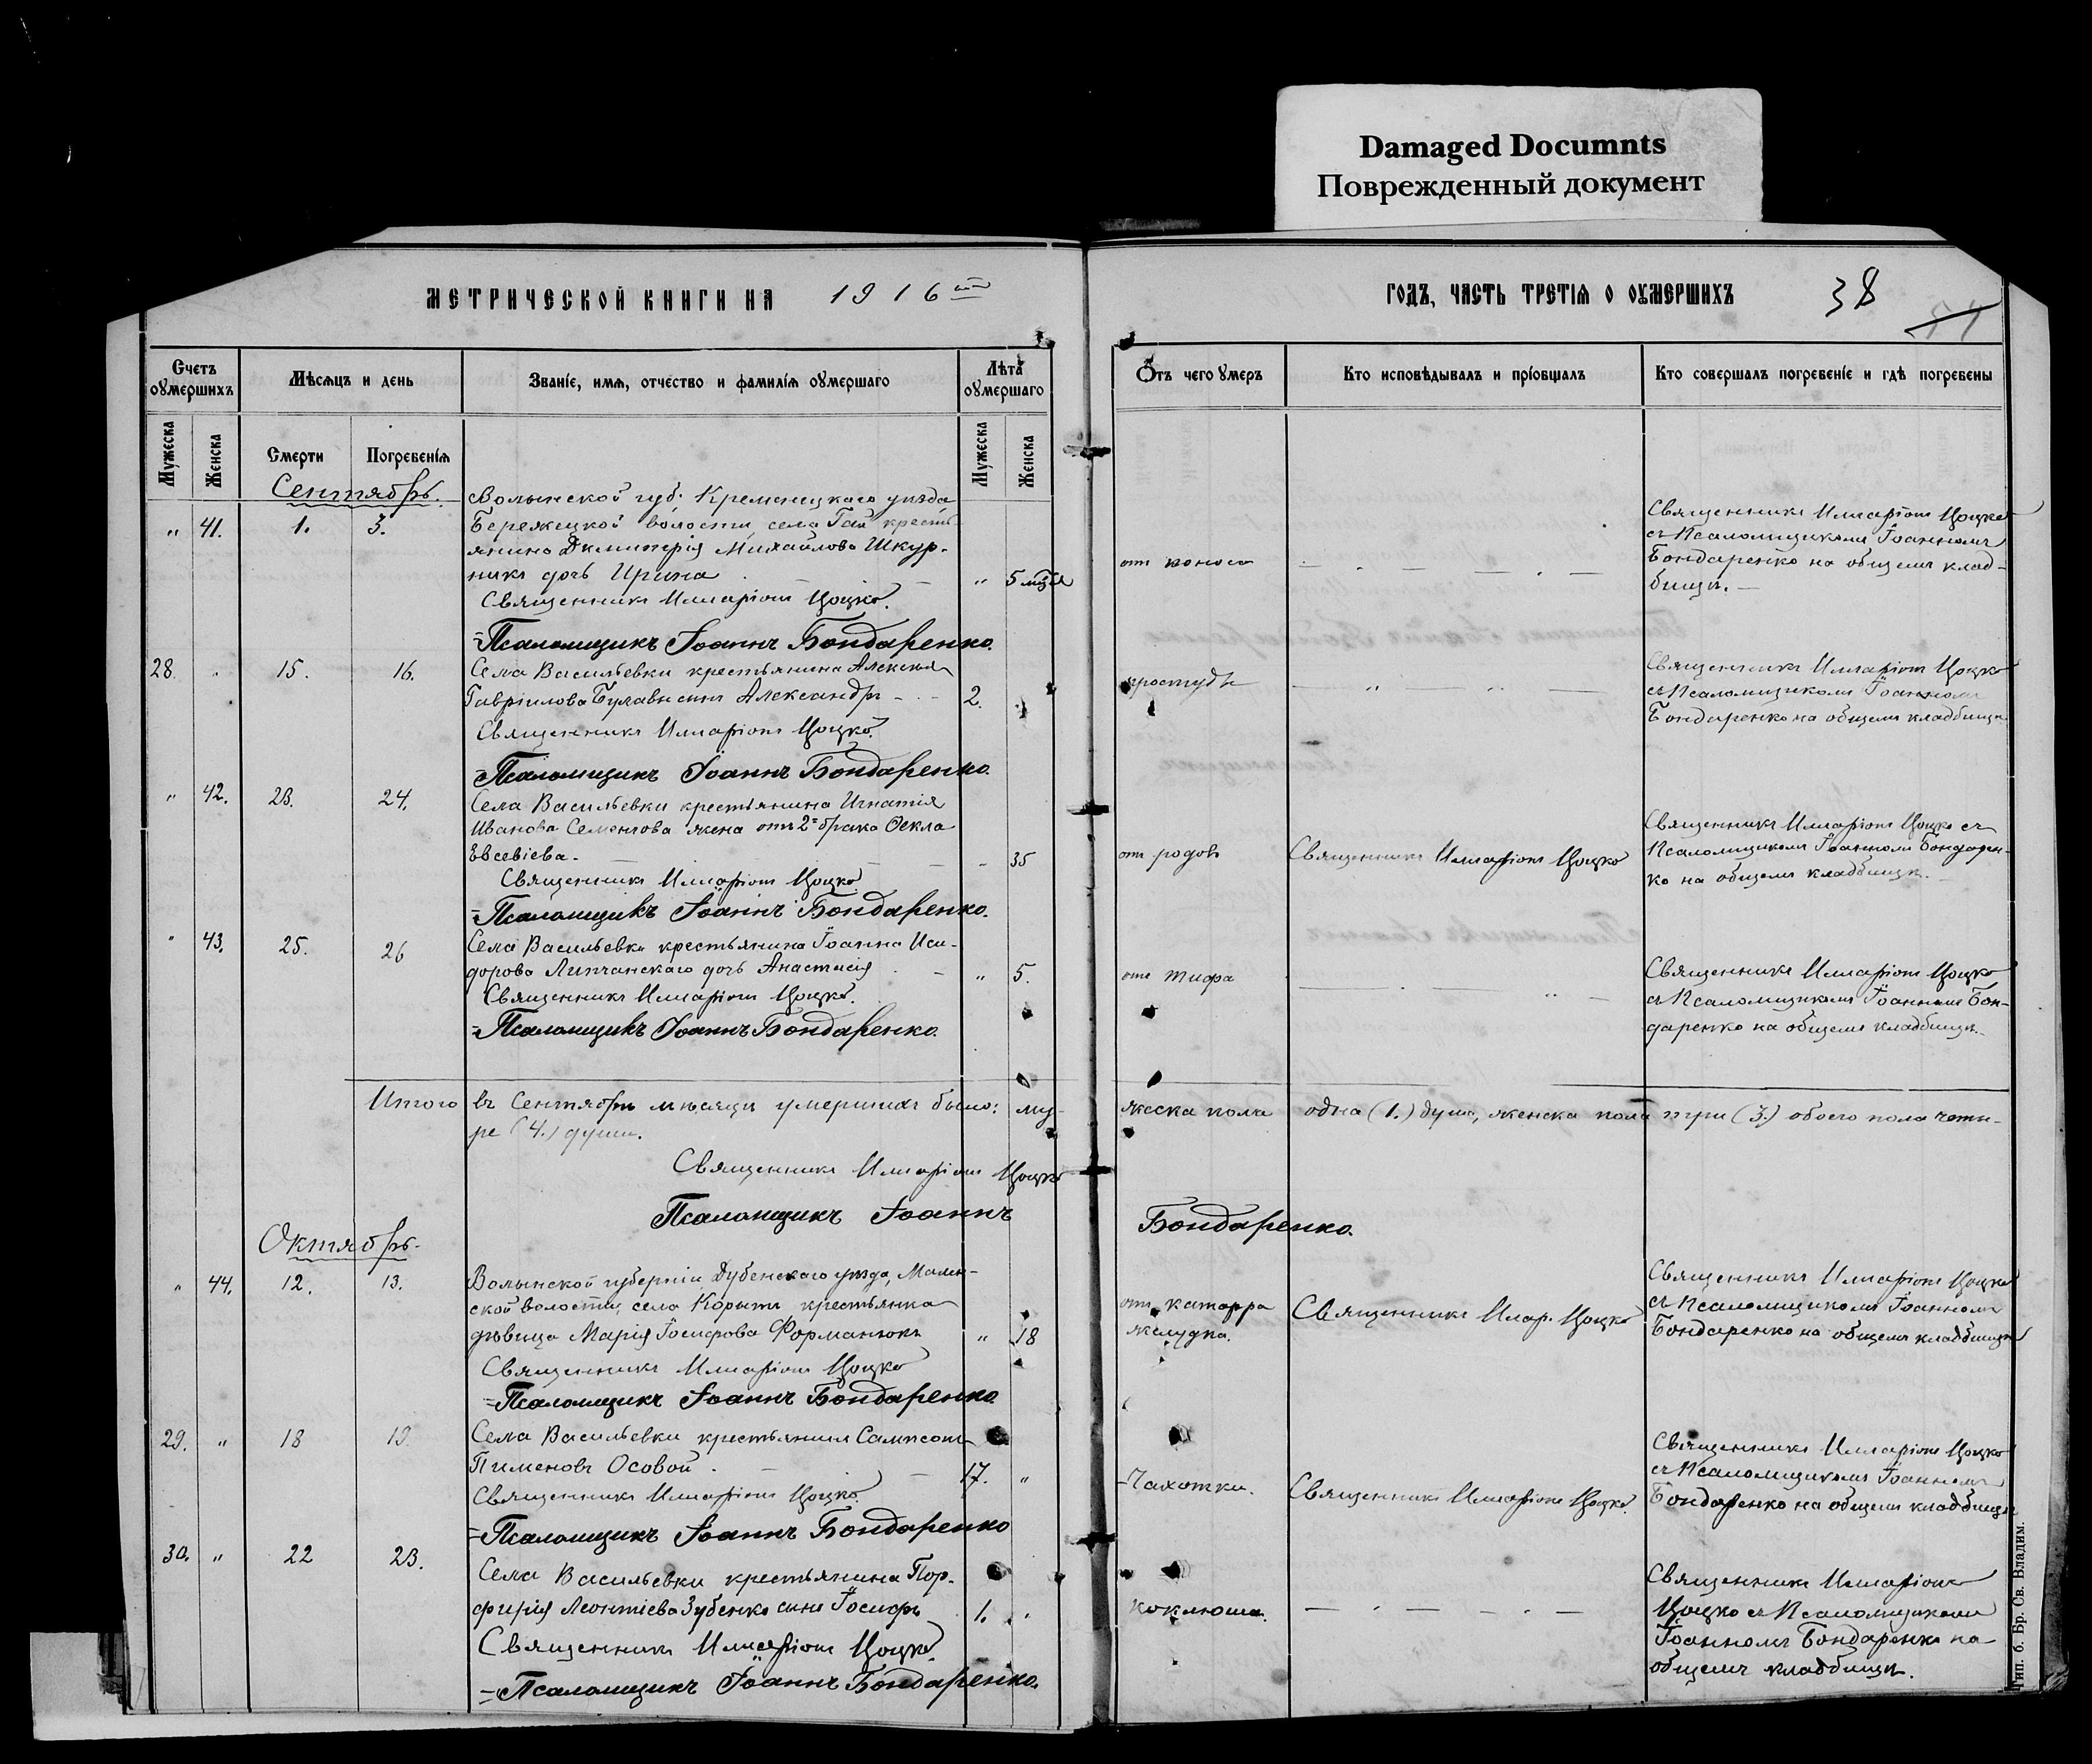 Damaged Documnts
Поврежденный документ
МЕТРИЧЕСКОЙ КНИГИ НА 1916
ГОДЪ, ЧАСТЬ ТРЕТІЯ О ОУМЕРШИХЪ 38
Счетъ оумершихъ
Мѣсяцъ и день
Званіе, имя, отчество и фамилія оумершаго
Лѣта оумершаго
Отъ чего умеръ
Кто исповѣдывалъ и пріобщалъ
Кто совершалъ погребеніе и гдѣ погребены
Мужеска
Женска
Смерти
Погребенія
Мужеска
Женска
Сентябрь.
Волынской губ. Кременецкаго уѣзда
„ 41. 1. 3. Бережецкой волости, села Гаи кресть-
янина Димитрія Михайлова Шкур-
никъ дочь Ирина „ 5 мѣся
Священникъ Иларіонъ Цоцко.
=Псаломщикъ Іоаннъ Бондаренко.
отъ поноса
Священникъ Иларіонъ Цоцко
съ Псаломщикомъ Іоанномъ
Бондаренко на общемъ клад-
бищѣ.
28. „ 15. 16. Села Васильевки крестьянина Алексѣя
Гавріилова Булавы сынъ Александръ 2.
Священникъ Иларіонъ Цоцко.
=Псаломщикъ Іоаннъ Бондаренко.
простуды
Священникъ Иларіонъ Цоцко
съ Псаломщикомъ Іоанномъ
Бондаренко на общемъ кладбищѣ
„ 42. 23. 24. Села Васильевки крестьянина Игнатія
Иванова Семенова жена отъ 2 брака Ѳекла
Евсевіева. „ 35
Священникъ Иларіонъ Цоцко
=Псаломщикъ Іоаннъ Бондаренко.
отъ родовъ
Священникъ Иларіонъ Цоцко
Священникъ Иларіонъ Цоцко съ
Псаломщикомъ Іоанномъ Бондарен-
ко на общемъ кладбищѣ.
„ 43. 25. 26 Села Васильевки крестьянина Іоанна Иси-
дорова Липчанскаго дочь Анастасія „ 5.
Священникъ Иларіонъ Цоцко.
=Псаломщикъ Іоаннъ Бондаренко.
отъ тифа
Священникъ Иларіонъ Цоцко
съ Псаломщикомъ Іоанномъ Бон-
даренко на общемъ кладбищѣ.
Итого въ Сентябрѣ мѣсяцѣ умершихъ было: му- жеска пола одна (1.) душа, женска пола три (3.) обоего пола четы-
ре (4.) души.
Священникъ Иларіонъ Цоцко
Псаломщикъ Іоаннъ Бондаренко.
Октябрь.
„ 44. 12. 13. Волынской губерніи Дубенскаго уѣзда, Малин-
ской волости, села Корыты крестьянка
дѣвица Марія Іосифова Форманюкъ „ 18
Священникъ Иларіонъ Цоцко
=Псаломщикъ Іоаннъ Бондаренко
отъ катарра
желудка.
Священникъ Илар. Цоцко
Священникъ Иларіонъ Цоцко
съ Псаломщикомъ Іоанномъ
Бондаренко на общемъ кладбищѣ
29. „ 18 19. Села Васильевки крестьянинъ Сампсонъ
Пименовъ Осовой 17. „
Священникъ Иларіонъ Цоцко.
=Псаломщикъ Іоаннъ Бондаренко
Чахотки.
Священникъ Иларіонъ Цоцко.
Священникъ Иларіонъ Цоцко
съ Псаломщикомъ Іоанномъ
Бондаренко на общемъ кладбищѣ
30. „ 22 23. Села Васильевки крестьянина Пор-
фирія Леонтіева Зубенко сынъ Іосифъ 1. „
Священникъ Иларіонъ Цоцко.
=Псаломщикъ Іоаннъ Бондаренко.
коклюша.
Священникъ Иларіонъ
Цоцко съ Псаломщикомъ
Іоанномъ Бондаренко на
общемъ кладбищѣ.
Тип. б. Бр. Св. Владим.